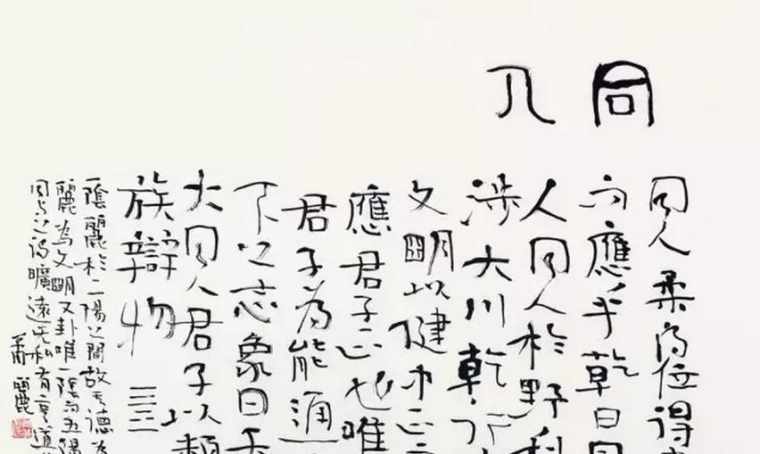 同人
同人柔得位得
而應乎乾曰同
人同人於野利
涉大川乾行
文明以健中正
應君子正也唯
君子為能通
下之志象曰天
火同人君子以類
族辯物
一陰麗於二陽之間故其德為
麗為文明又卦唯一陰而五陽
同與之為曠遠无私有亨道